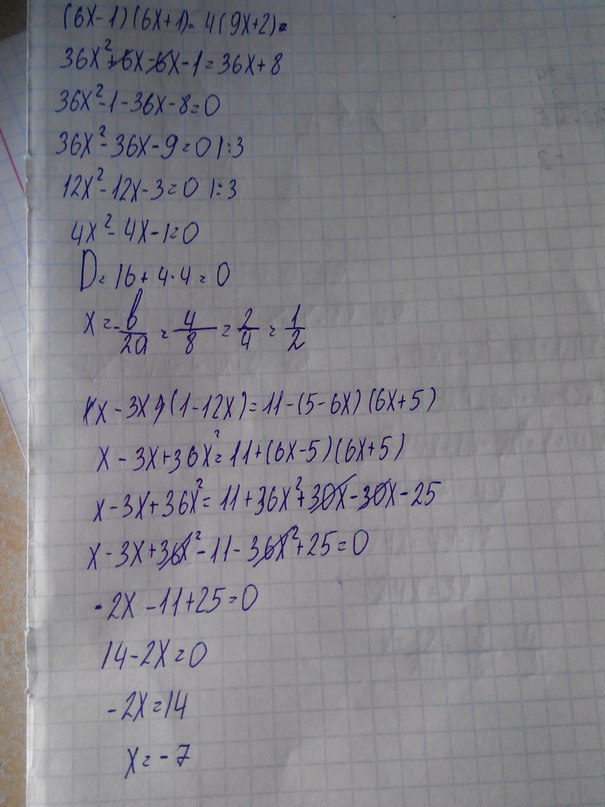 (6x-1)(6x+1)=4(9x+2)
36x²+6x-6x-1=36x+8
36x²-1-36x-8=0
36x²-36x-9=0 |:3
12x²-12x-3=0 |:3
4x²-4x-1=0
D=16+4·4=0
x=-b/2a=4/8=2/4=1/2
x-3x(1-12x)=11-(5-6x)(6x+5)
x-3x+36x²=11+(6x-5)(6x+5)
x-3x+36x²=11+36x²+30x-30x-25
x-3x+36x²-11-36x²+25=0
-2x-11+25=0
14-2x=0
-2x=14
x=-7